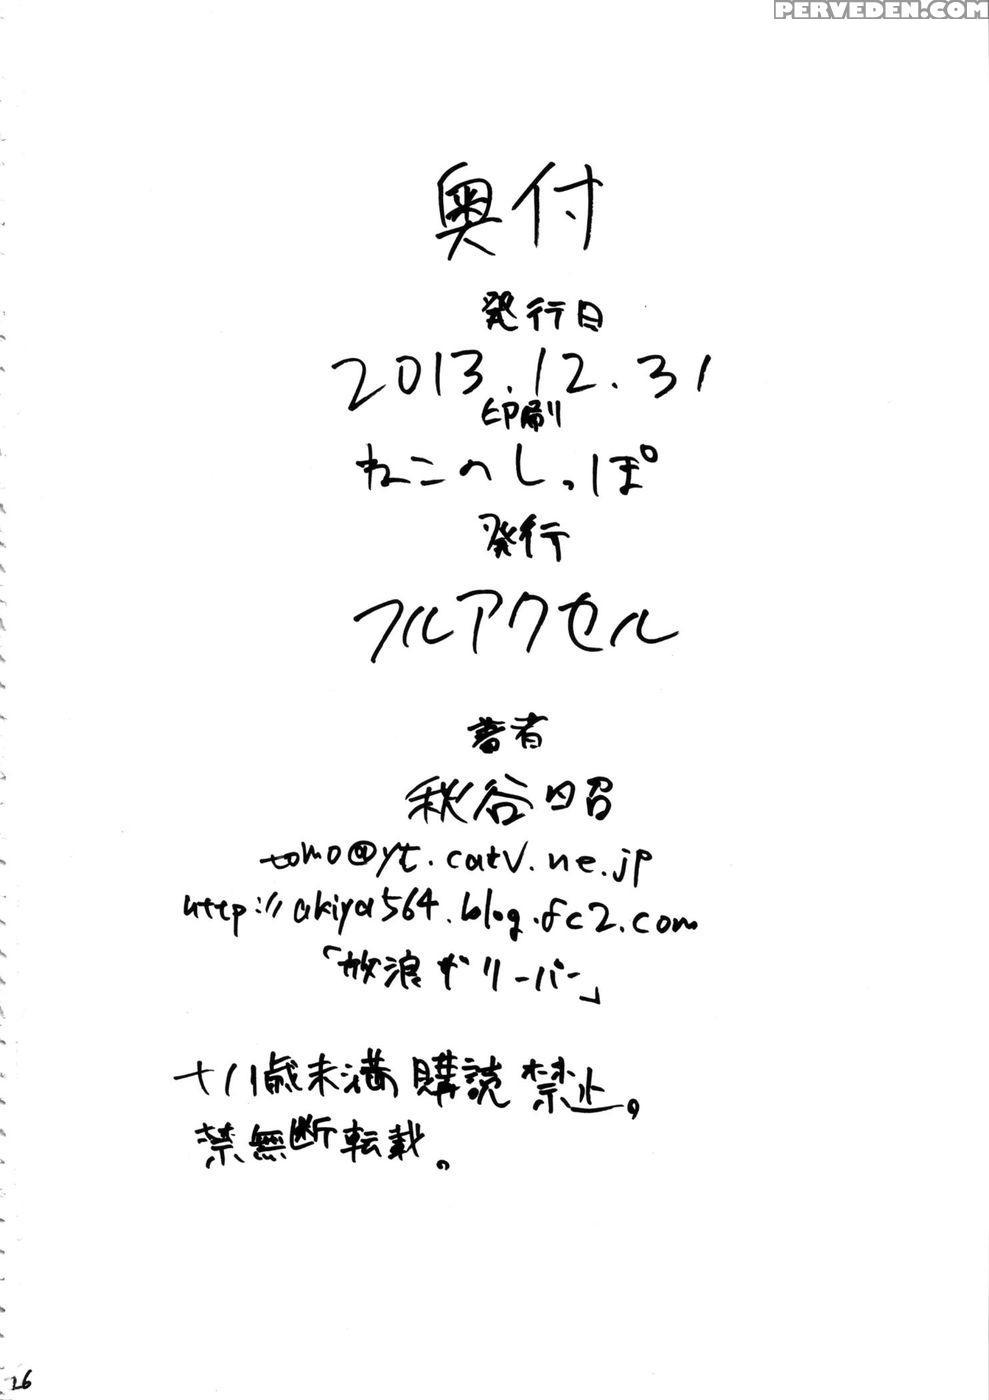 PERVEDEN.COM
奥付
発行日
2013.12.31
印刷
ねこのしっぽ
発行
フルアクセル
著者
秋谷昭
tomo@yt.catv.ne.jp
http://akiya564.blog.fc2.com
「放浪ザリーバー」
十八歳未満購読禁止。
禁無断転載。
26